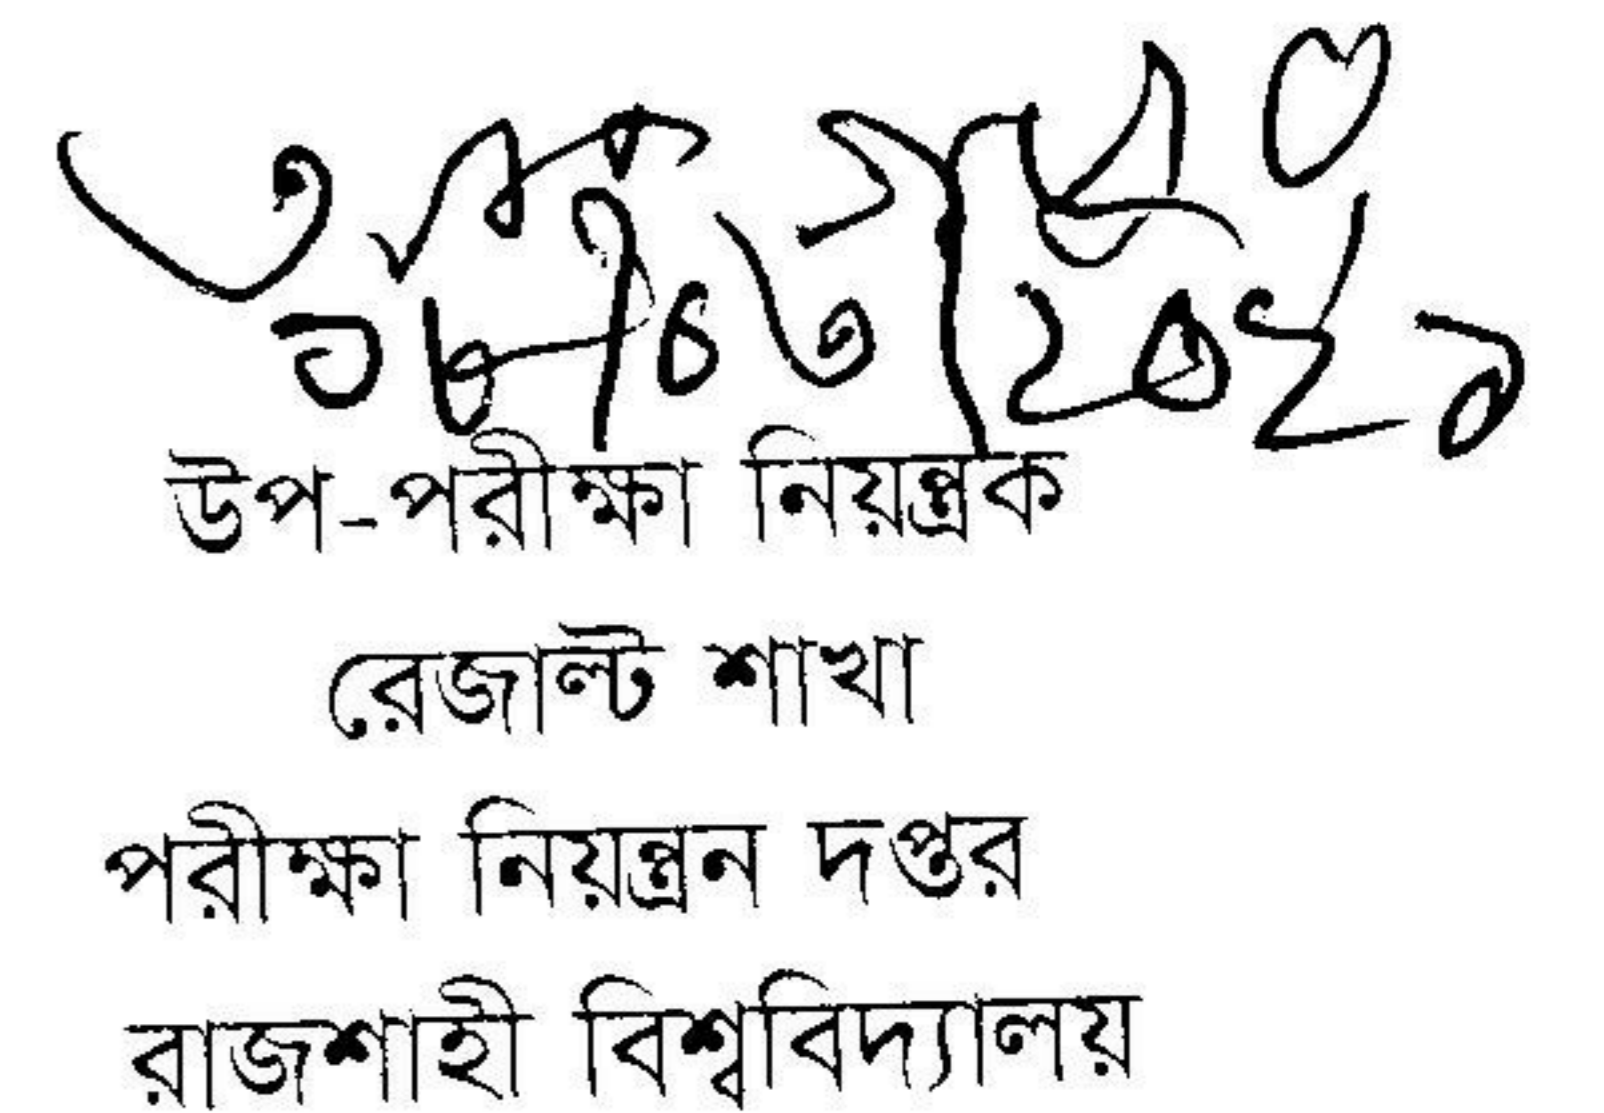 উপ-পরীক্ষা নিয়ন্ত্রক
রেজাল্ট শাখা
পরীক্ষা নিয়ন্ত্রন দপ্তর
রাজশাহী বিশ্ববিদ্যালয়